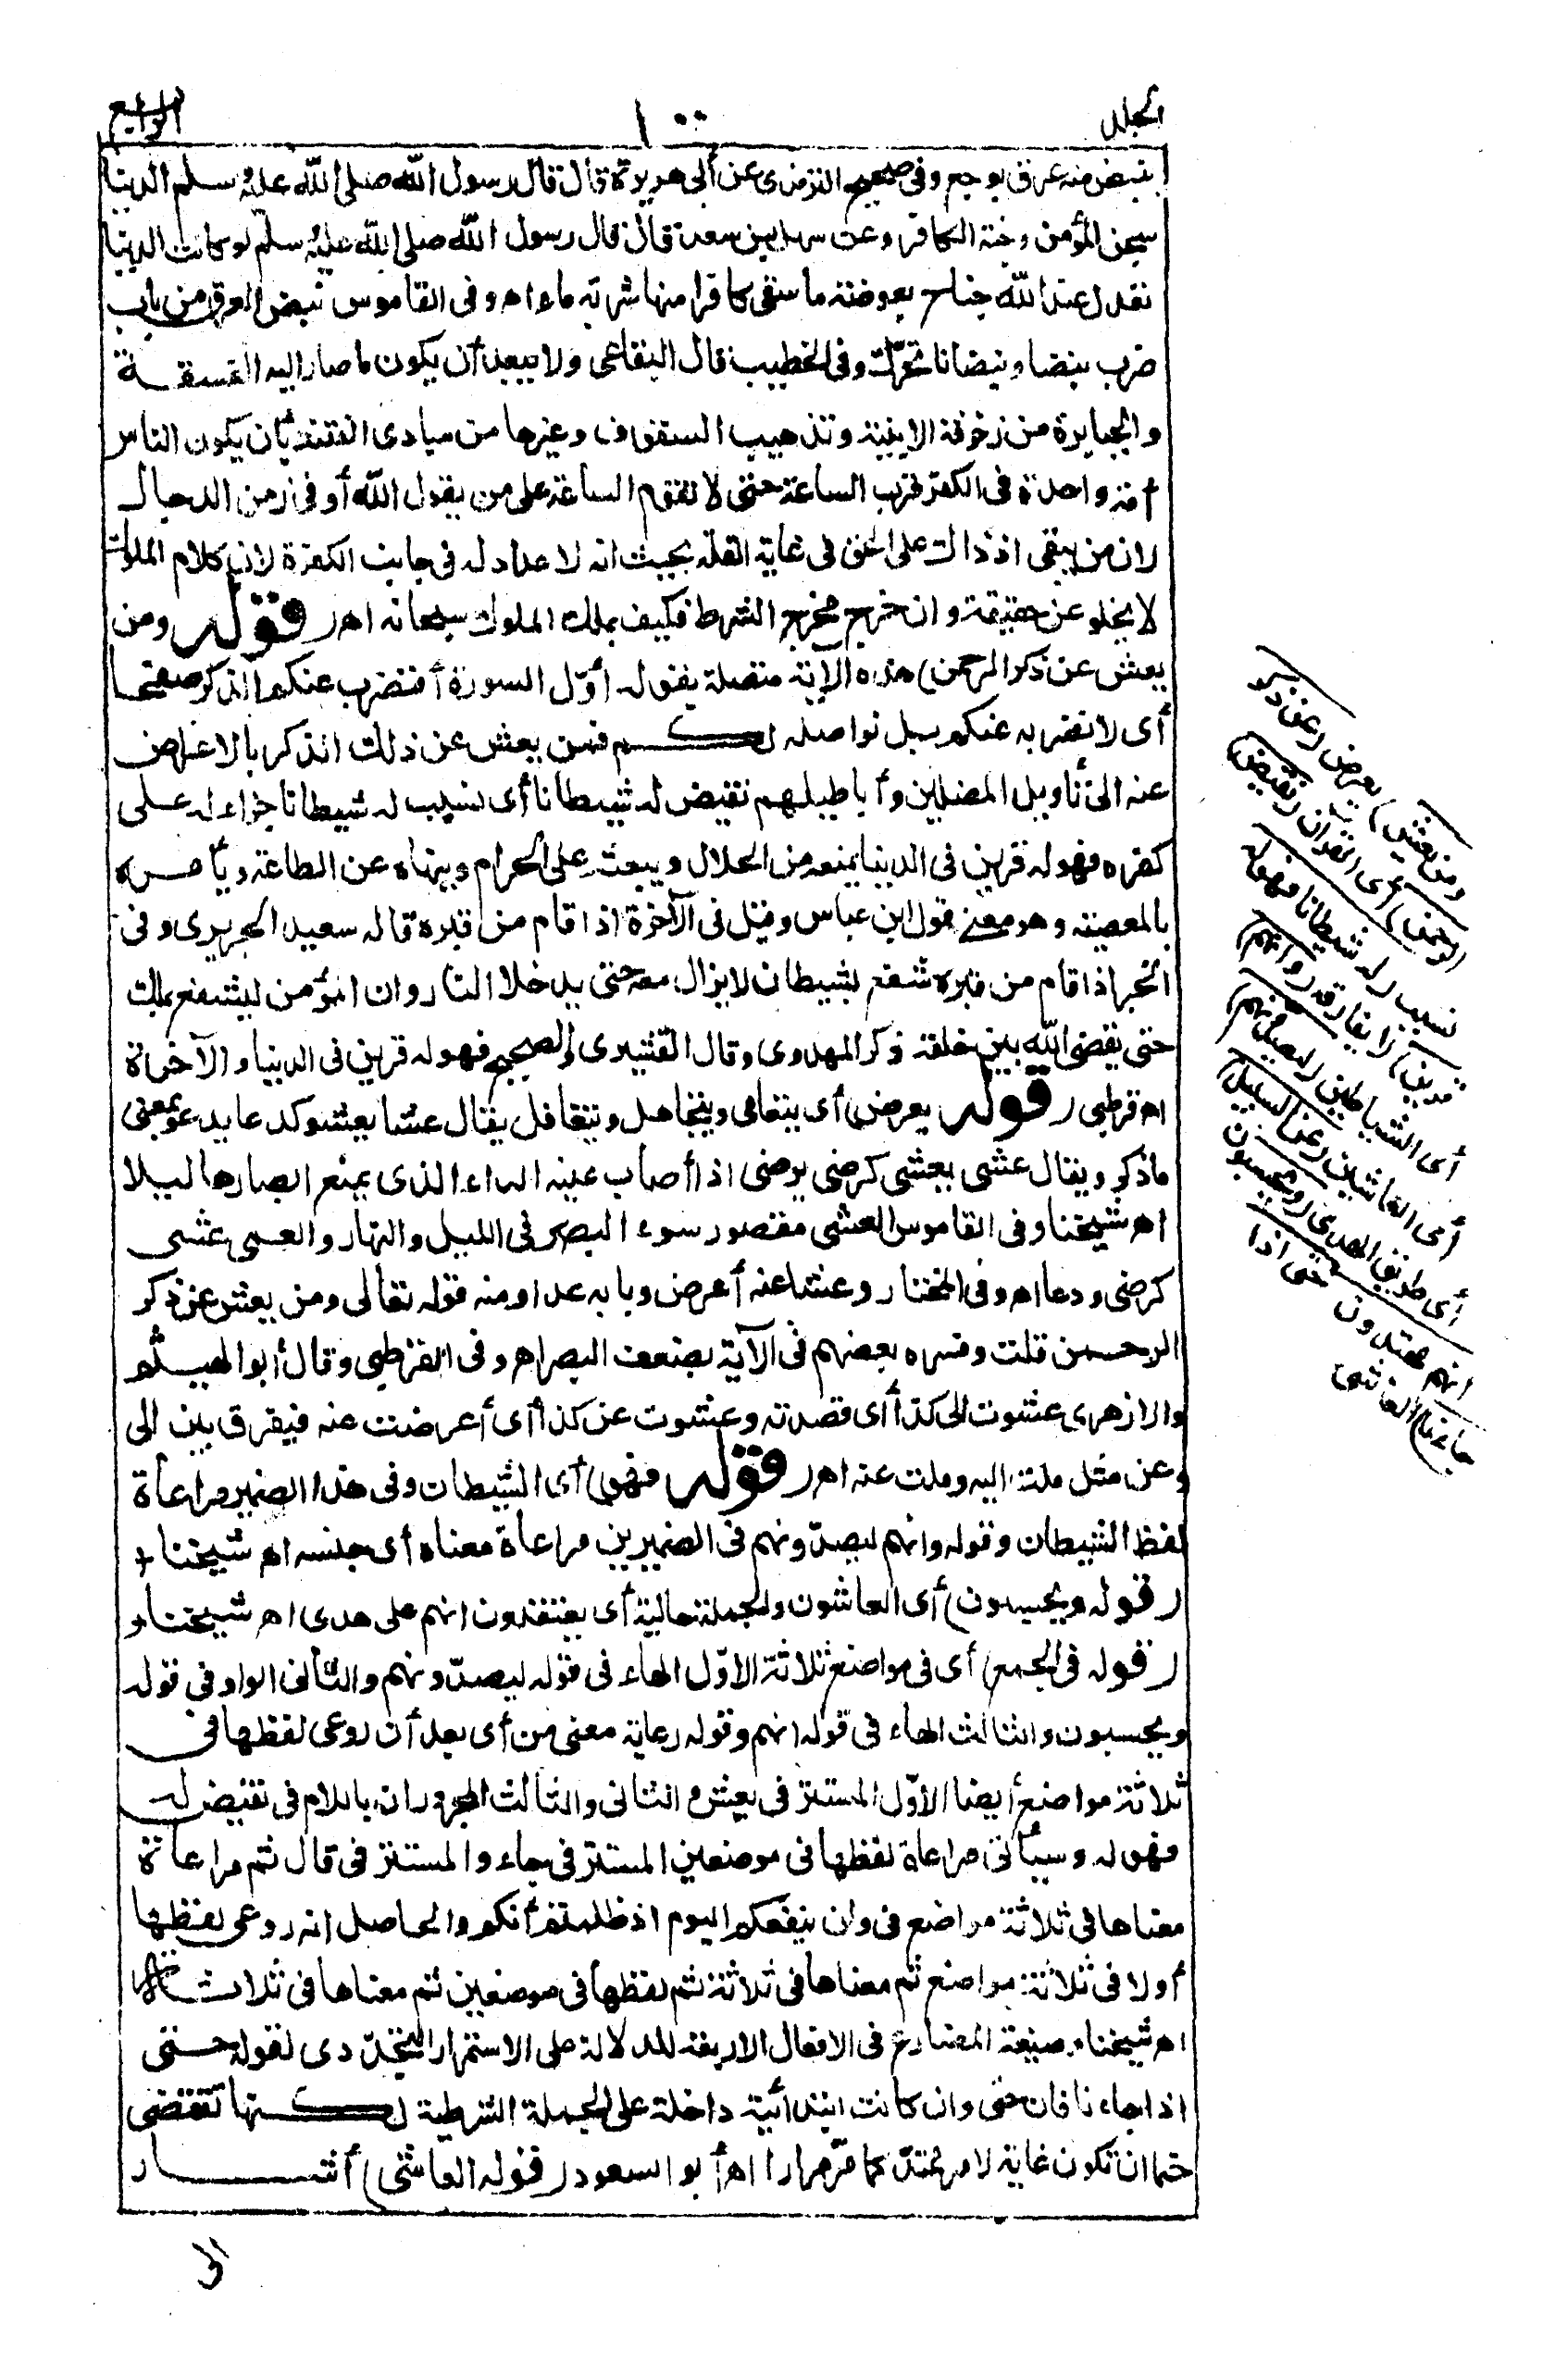 المجلد
١٠٠
الرابع
ينبض منه عرق بوجع وفى صحيح الترمذى عن أبى هريرة قال قال رسول الله صلى الله عليه وسلم الدنيا
سجن المؤمن وجنة الكافر وعن سهل بن سعد قال قال رسول الله صلى الله عليه وسلم لو كانت الدنيا
تعدل عند الله جناح بعوضة ما سقى كافرا منها شربة ماء اه وفى القاموس نبض العرق من باب
ضرب نبضا ونبضانا تحرّك وفى الخطيب قال البقاعى ولا يبعد أن يكون ما صار اليه الفسقة
والجبابرة من زخرفة الابنية وتذهيب السقوف وغيرها من مبادى الفتنة بأن يكون الناس
أمة واحدة فى الكفر قرب الساعة حتى لا تقوم الساعة على من يقول الله أو فى زمن الدجال
لان من يبقى اذ ذاك على الحق فى غاية القلة بحيث انه لا عداد له فى جانب الكفرة لان كلام الملوك
لا يخلو عن حقيقة وان خرج مخرج الشرط فكيف بملك الملوك سبحانه اه (قوله ومن
يعش عن ذكر الرحمن) هذه الآية متصلة بقوله أوّل السورة أفنضرب عنكم الذكر صفحا
أى لا نضربه عنكم بل نواصله لكم فمن يعش عن ذلك الذكر بالاعراض
عنه الى تأويل المضلين وأباطيلهم نقيض له شيطانا أى نسبب له شيطانا جزاء له على
كفره فهو له قرين فى الدنيا يمنعه من الحلال ويبعث على الحرام وينهاه عن الطاعة ويأمره
بالمعصية وهو معنى قول ابن عباس وقيل فى الآخرة اذا قام من قبره قاله سعيد الجريرى وفى
الخبر اذا قام من قبره شفع بشيطان لا يزال معه حتى يدخلا النار وان المؤمن ليشفع بملك
حتى يقضى الله بين خلقه ذكر المهدوى وقال القشيرى والصحيح فهو له قرين فى الدنيا والآخرة
اه قرطبى (قوله يعرض) أى يتعامى ويتجاهل ويتغافل يقال عشا يعشو كدعا يدعو بمعنى
ما ذكر ويقال عشى يعشى كرضى يرضى اذا أصاب عينه الداء الذى يمنع ابصارها ليلا
اه شيخنا وفى القاموس العشى مقصور سوء البصر فى الليل والنهار والعمى عشى
كرضى ودعا اه وفى المختار وعشا عنه أعرض وبابه عدا ومنه قوله تعالى ومن يعش عن ذكر
الرحمن قلت وفسره بعضهم فى الآية بضعف البصر اه وفى القرطبى وقال أبو الهيثم
والازهرى عشوت الى كذا أى قصدته وعشوت عن كذا أى أعرضت عنه فيفرق بين الى
وعن مثل ملت اليه وملت عنه اه (قوله فهو) أى الشيطان وفى هذا الضمير مراعاة
لفظ الشيطان وقوله وانهم ليصدّونهم فى الضميرين مراعاة معناه أى جنسه اه شيخنا +
(قوله ويحسبون) أى العاشون والجملة حالية أى يعتقدون انهم على هدى اه شيخنا
(قوله فى الجمع) أى فى مواضع ثلاثة الاوّل الهاء فى قوله ليصدّونهم والثانى الواو فى قوله
ويحسبون والثالث الهاء فى قوله انهم وقوله رعاية معنى من أى بعد أن روعى لفظها فى
ثلاثة مواضع أيضا الاوّل المستتر فى يعش والثانى والثالث المجروران باللام فى نقيض له
فهو له وسيأتى مراعاة لفظها فى موضعين المستتر فى جاء والمستتر فى قال ثم مراعاة
معناها فى ثلاثة مواضع فى ولن ينفعكم اليوم اذ ظلمتم أنكم والحاصل انه روعى لفظها
أولا فى ثلاثة مواضع ثم معناها فى ثلاثة ثم لفظها فى موضعين ثم معناها فى ثلاث
اه شيخنا وصيغة المضارع فى الافعال الاربعة للدلالة على الاستمرار التجدّدى لقوله حتى
اذا جاءنا فان حتى وان كانت ابتدائية داخلة على الجملة الشرطية لكنها تقتضى
حتما ان تكون غاية لامر ممتدّ كما مرّ مرارا اه أبو السعود (قوله العاشى) أشار
الى
(ومن يعش) يعرض (عن ذكر
الرحمن) أى القرآن (نقيض)
نسبب (له شيطانا فهو له
قرين) لا يفارقه (وانهم)
أى الشياطين (ليصدّونهم)
أى العاشين (عن السبيل)
أى طريق الهدى (ويحسبون
أنهم مهتدون حتى اذا
جاءنا) العاشى